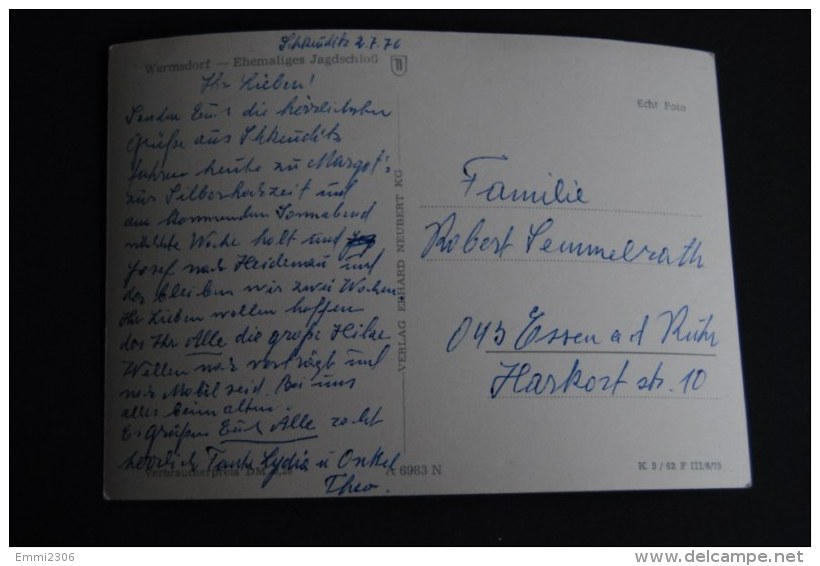 Schkeuditz 2.7.76
Wermsdorf — Ehemaliges Jagdschloß
Ihr Lieben!
Senden Euch die herzlichsten
Grüße aus Schkeuditz
fahren heute zu Margot's
zur Silberhochzeit und
am kommenden Sonnabend
nächste Woche holt und
Josef nach Heidenau und
da bleiben wir zwei Wochen
Ihr Lieben wollen hoffen
das Ihr Alle die große Hitze
Wellen noch verträgt und
noch Mobil seid. Bei uns
alles beim alten.
Es Grüßen Euch Alle recht
herzlich Tante Lydia u Onkel
Theo.
Verbraucherpreis DM
A 6983 N
VERLAG ERHARD NEUBERT KG
Echt Foto
Familie
Robert Semmelrath
043 Essen a d Ruhr
Harkort str. 10
K 3/62 F III/6/75
Emmi2306
www.delcampe.net